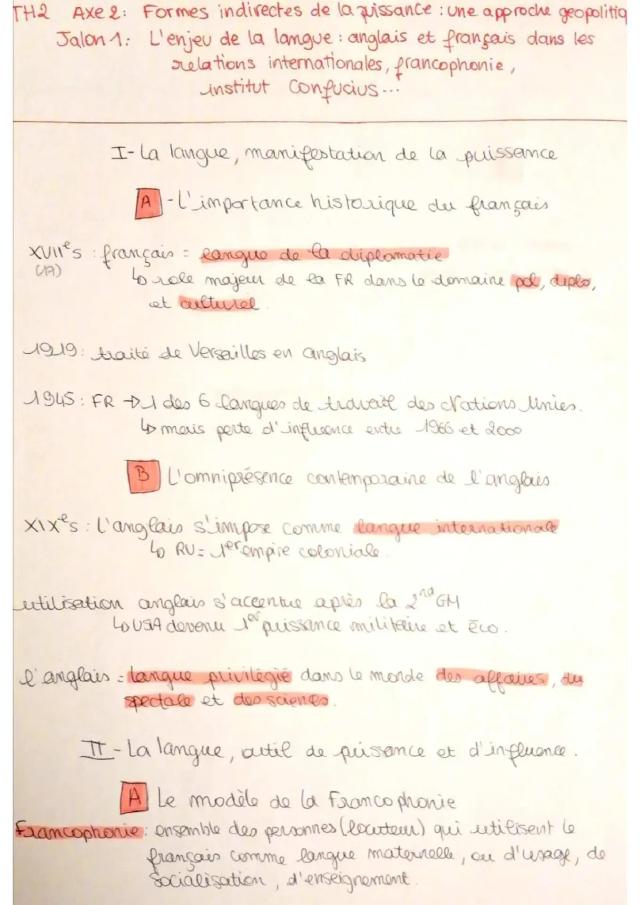 TH2 Axe 2: Formes indirectes de la puissance : une approche geopolitiq
Jalon 1: L'enjeu de la langue : anglais et français dans les
relations internationales, francophonie,
institut Confucius...
I- La langue, manifestation de la puissance
A - L'importance historique du français
XVIIe s : français = langue de la diplomatie
(17)
↳ role majeur de la FR dans le domaine pol, diplo,
et culturel.
1919: traité de Versailles en anglais
1945: FR → 1 des 6 langues de travail des Nations Unies.
↳ mais perte d'influence entre 1966 et 2000
B L'omniprésence contemporaine de l'anglais
XIXe s : L'anglais s'impose comme langue internationale
↳ RU = 1er empire coloniale.
utilisation anglais s'accentue après la 2nd GM
↳ USA devenu 1er puissance militaire et éco.
l'anglais = langue privilégié dans le monde des affaires, du
spectale et des sciences.
II - La langue, outil de puissance et d'influence.
A Le modèle de la Francophonie
Francophonie : ensemble des personnes (locuteur) qui utilisent le
français comme langue maternelle, ou d'usage, de
socialisation, d'enseignement.